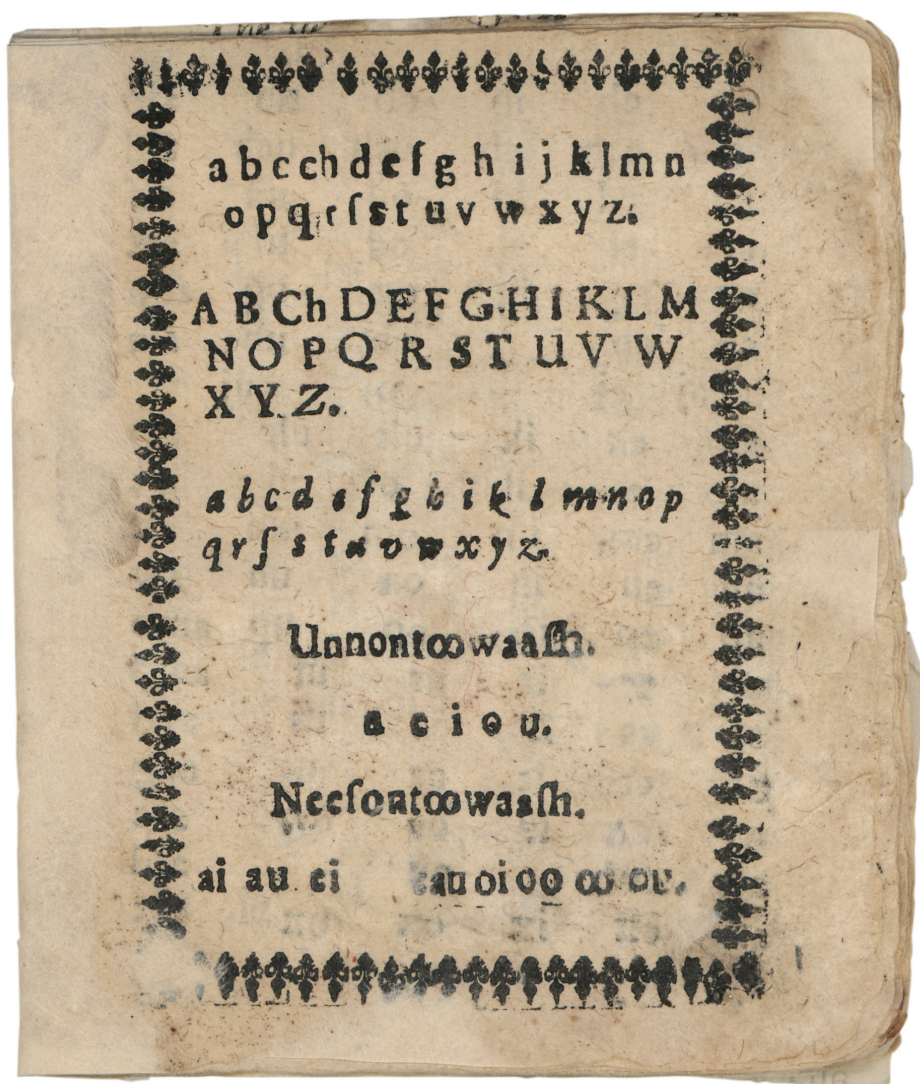 a b c ch d e f g h i j k l m n
o p q r ſ s t u v w x y z.
A B Ch D E F G H I K L M
N O P Q R S T U V W
X Y Z.
a b c d e f g h i k l m n o p
q r ſ s t u v w x y z.
Unnontꝏwaaſh.
a e i o u.
Neeſontꝏwaaſh.
ai au ei eau oi oo ꝏ ou.